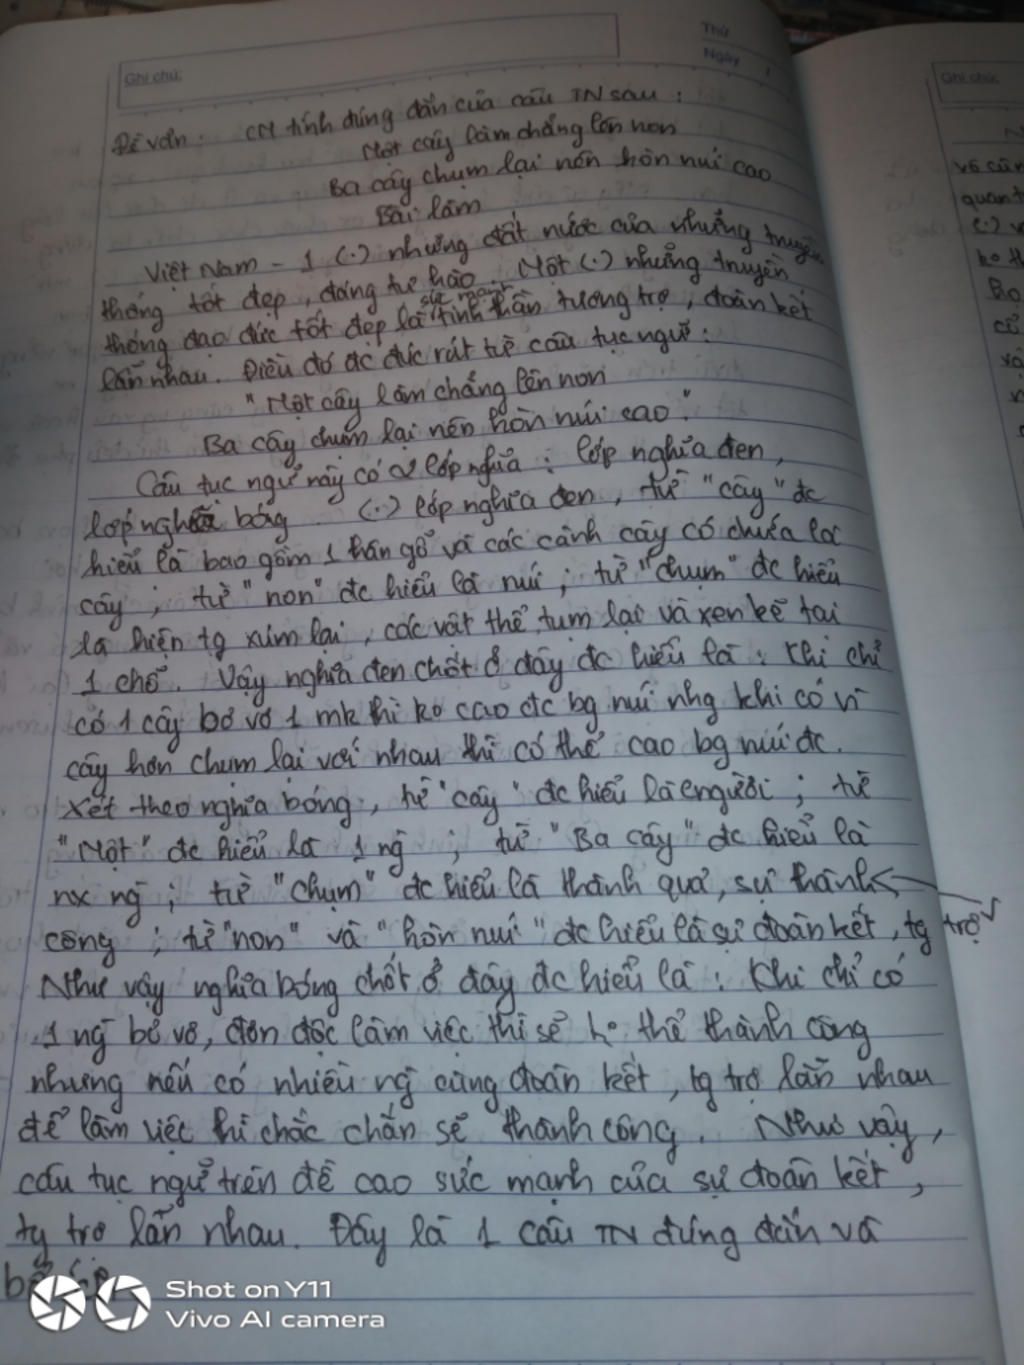 Ghi chú:
Thứ
Ngày /
Đề văn: CM tính đúng đắn của câu TN sau:
Một cây làm chẳng lên non
Ba cây chụm lại nên hòn núi cao
Bài làm
Việt Nam - 1 (.) những đất nước của những truyền
thống tốt đẹp, đáng tự hào. Một (.) những truyền
thống đạo đức tốt đẹp là sức mạnh tinh thần tương trợ, đoàn kết
lẫn nhau. Điều đó đc đúc rút từ câu tục ngữ:
"Một cây làm chẳng lên non
Ba cây chụm lại nên hòn núi cao"
Câu tục ngữ này có 2 lớp nghĩa: lớp nghĩa đen,
lớp nghĩa bóng. (.) lớp nghĩa đen, từ "cây" đc
hiểu là bao gồm 1 thân gỗ và các cành cây có chứa lá
cây; từ "non" đc hiểu là núi; từ "chụm" đc hiểu
là hiện tg xúm lại, các vật thể tụm lại và xen kẽ tại
1 chỗ. Vậy nghĩa đen chốt ở đây đc hiểu là: Khi chỉ
có 1 cây bơ vơ 1 mk thì ko cao đc bg núi nhg khi có
cây hơn chụm lại với nhau thì có thể cao bg núi đc.
Xét theo nghĩa bóng, từ "cây" đc hiểu là người; từ
"Một" đc hiểu là 1 ng; từ "Ba cây" đc hiểu là
nx ng; từ "chụm" đc hiểu là thành quả, sự thành
công; từ "non" và "hòn núi" đc hiểu là sự đoàn kết, tg trợ
Như vậy nghĩa bóng chốt ở đây đc hiểu là: Khi chỉ có
1 ng bơ vơ, đơn độc làm việc thì sẽ ko thể thành công
nhưng nếu có nhiều ng cùng đoàn kết, tg trợ lẫn nhau
để làm việc thì chắc chắn sẽ thành công. Như vậy,
câu tục ngữ trên đề cao sức mạnh của sự đoàn kết,
tg trợ lẫn nhau. Đây là 1 câu TN đúng đắn và
Shot on Y11
Vivo AI camera
Ghi chú:
quan
(.)